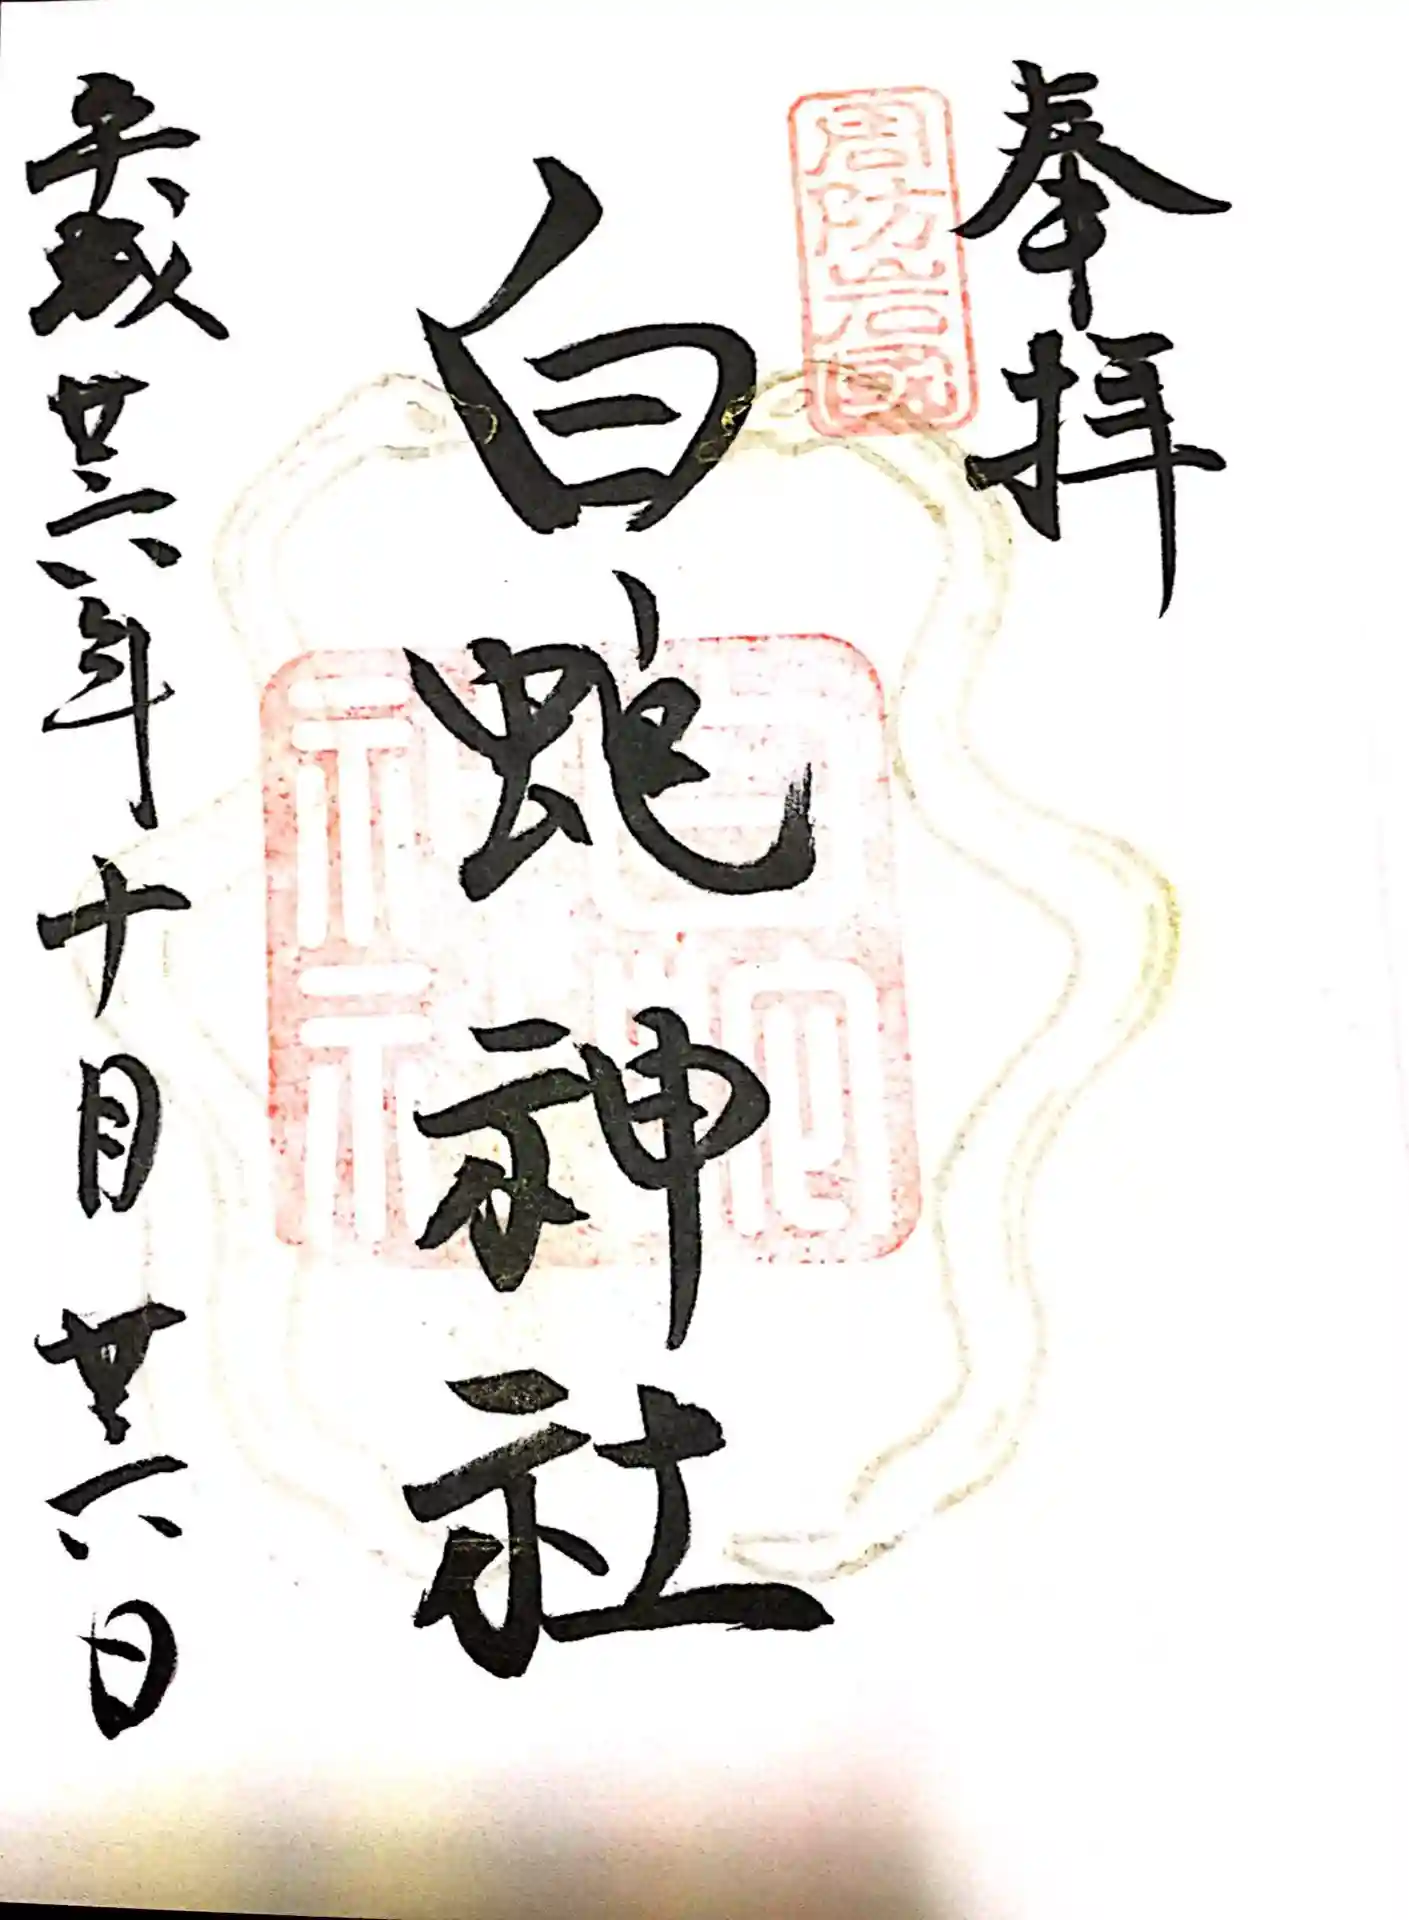 奉拝
周防岩國
白蛇神社
白蛇
神社
平成廿六年十月廿六日